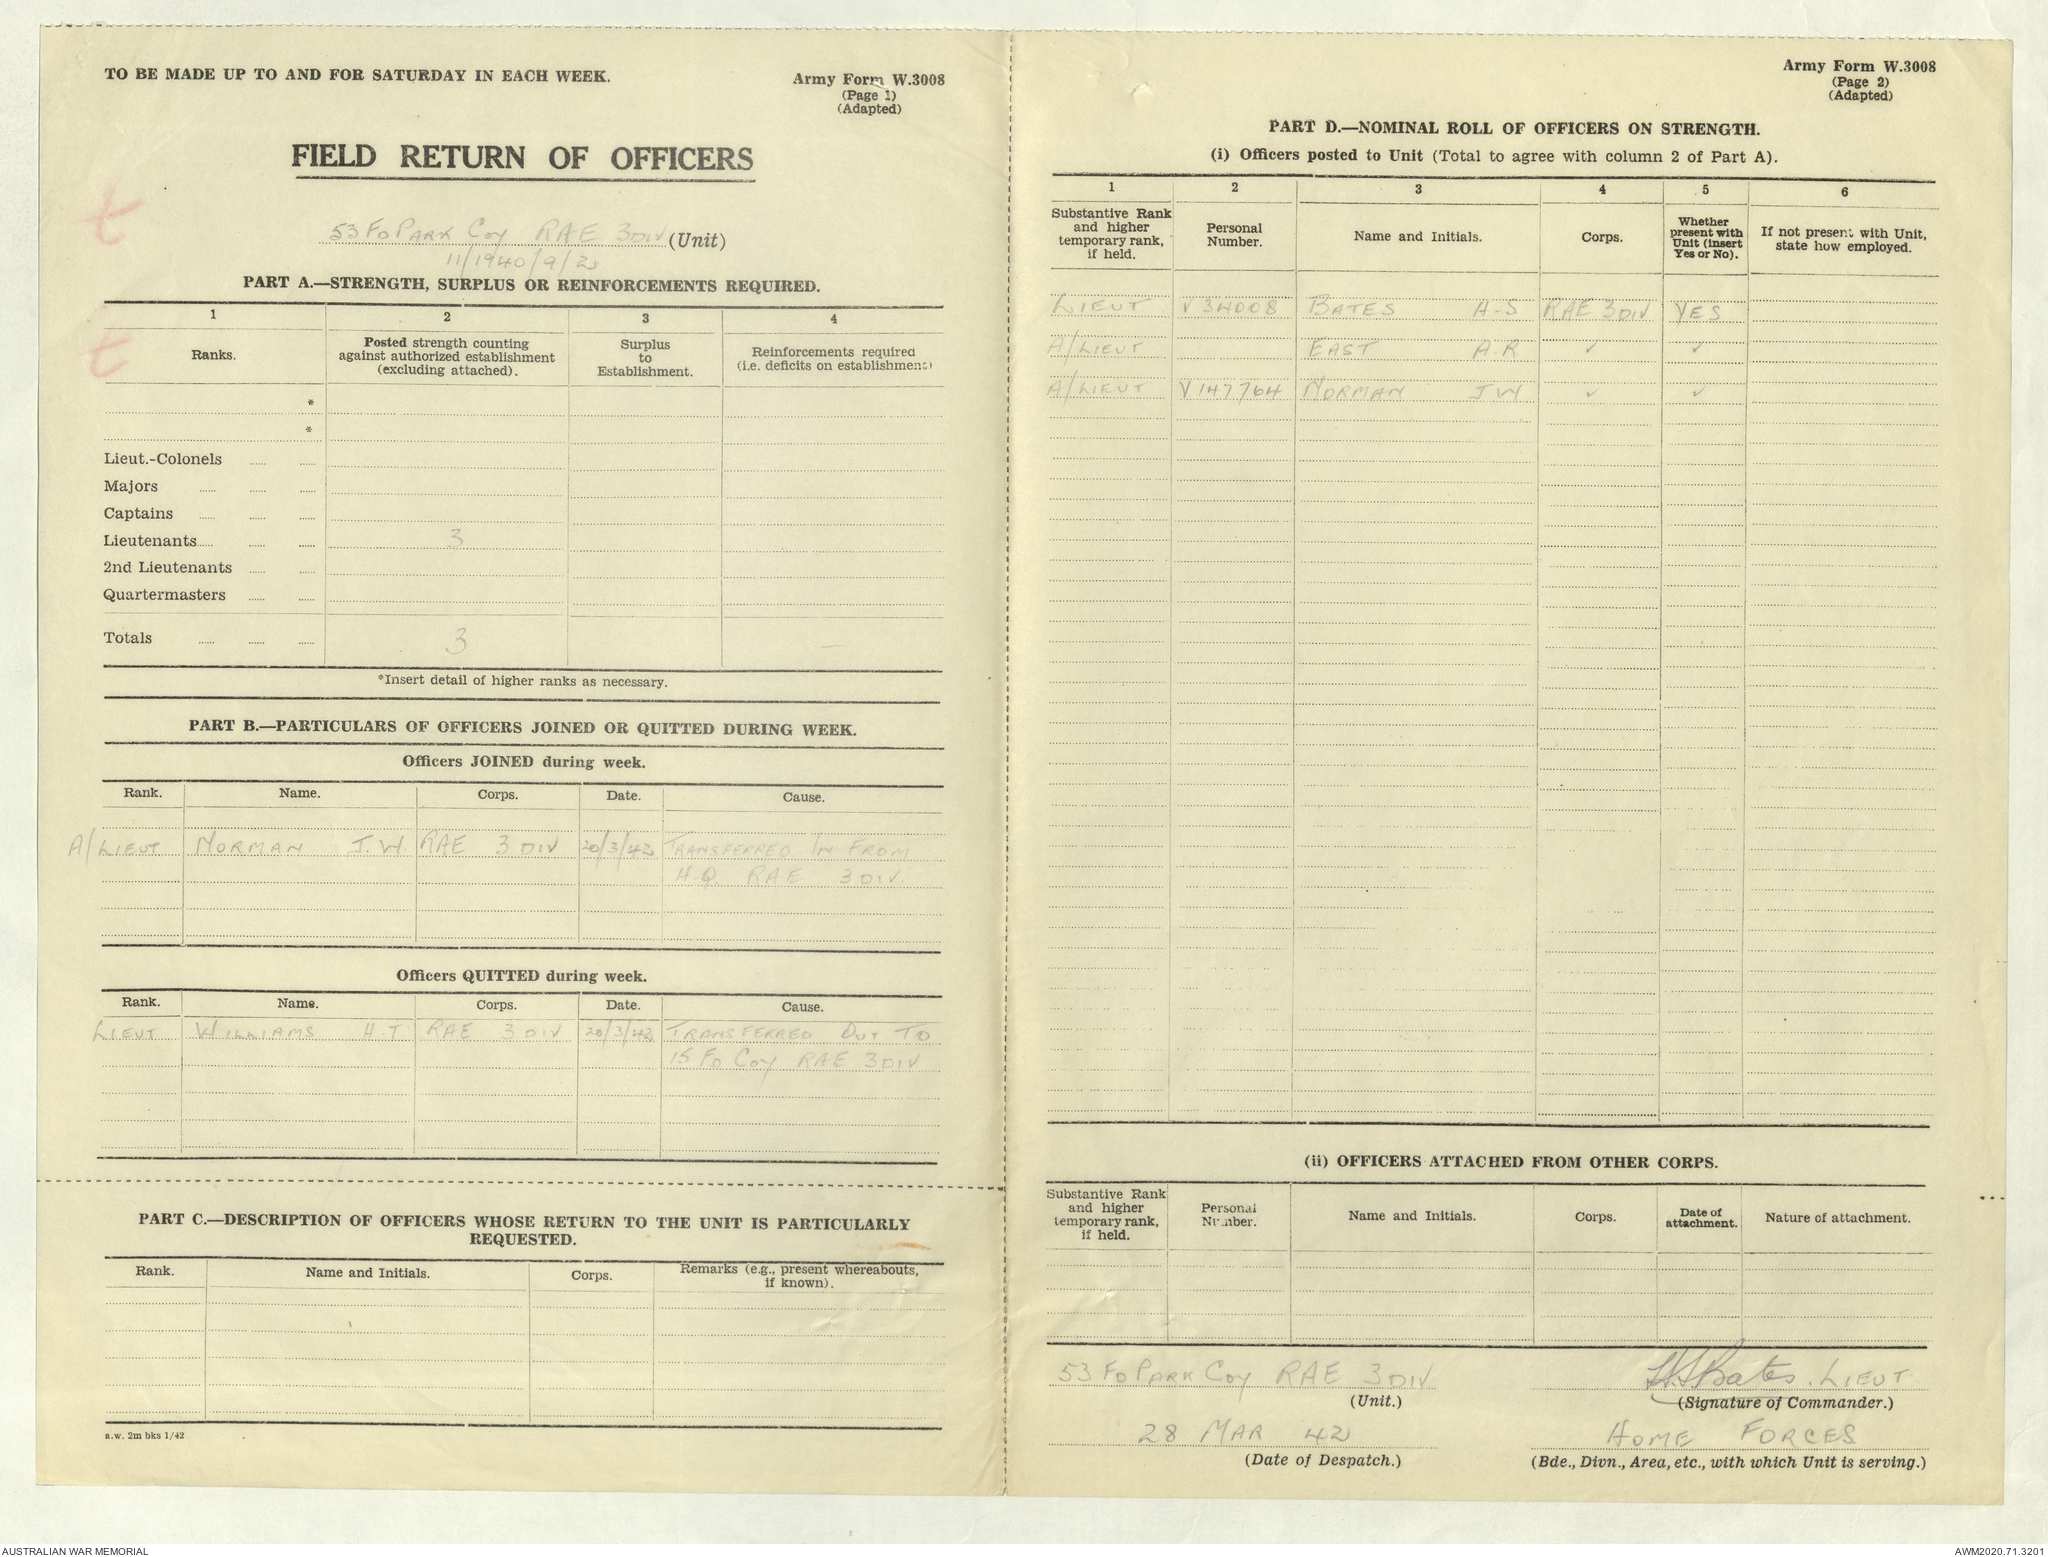 TO BE MADE UP TO AND FOR SATURDAY IN EACH WEEK.
Army Form W.3008
(Page 1)
(Adapted)
FIELD RETURN OF OFFICERS
t
53 FD PARK COY RAE 3 DIV (Unit)
11/1940/9/2
PART A.—STRENGTH, SURPLUS OR REINFORCEMENTS REQUIRED.
t
1 2 3 4
Ranks. Posted strength counting against authorized establishment (excluding attached). Surplus to Establishment. Reinforcements required (i.e. deficits on establishment)
*
*
Lieut.-Colonels
Majors
Captains
Lieutenants 3
2nd Lieutenants
Quartermasters
Totals 3 —
*Insert detail of higher ranks as necessary.
PART B.—PARTICULARS OF OFFICERS JOINED OR QUITTED DURING WEEK.
Officers JOINED during week.
Rank. Name. Corps. Date. Cause.
A/LIEUT NORMAN J.W. RAE 3 DIV 20/3/42 TRANSFERRED IN FROM
H.Q. RAE 3 DIV.
Officers QUITTED during week.
Rank. Name. Corps. Date. Cause.
LIEUT WILLIAMS H.T RAE 3 DIV 20/3/42 TRANSFERRED OUT TO
15 FD COY RAE 3 DIV
PART C.—DESCRIPTION OF OFFICERS WHOSE RETURN TO THE UNIT IS PARTICULARLY
REQUESTED.
Rank. Name and Initials. Corps. Remarks (e.g., present whereabouts, if known).
a.w. 2m bks 1/42
Army Form W.3008
(Page 2)
(Adapted)
PART D.—NOMINAL ROLL OF OFFICERS ON STRENGTH.
(i) Officers posted to Unit (Total to agree with column 2 of Part A).
1 2 3 4 5 6
Substantive Rank and higher temporary rank, if held. Personal Number. Name and Initials. Corps. Whether present with Unit (insert Yes or No). If not present with Unit, state how employed.
LIEUT V34008 BATES A-S RAE 3 DIV. YES
A/LIEUT EAST A.R. ✓ ✓
A/LIEUT V147764 NORMAN J W ✓ ✓
(ii) OFFICERS ATTACHED FROM OTHER CORPS.
Substantive Rank and higher temporary rank, if held. Personal Number. Name and Initials. Corps. Date of attachment. Nature of attachment.
53 FD PARK COY RAE 3 DIV
(Unit.)
A S Bates. LIEUT.
(Signature of Commander.)
28 MAR 42
(Date of Despatch.)
HOME FORCES
(Bde., Divn., Area, etc., with which Unit is serving.)
AUSTRALIAN WAR MEMORIAL
AWM2020.71.3201